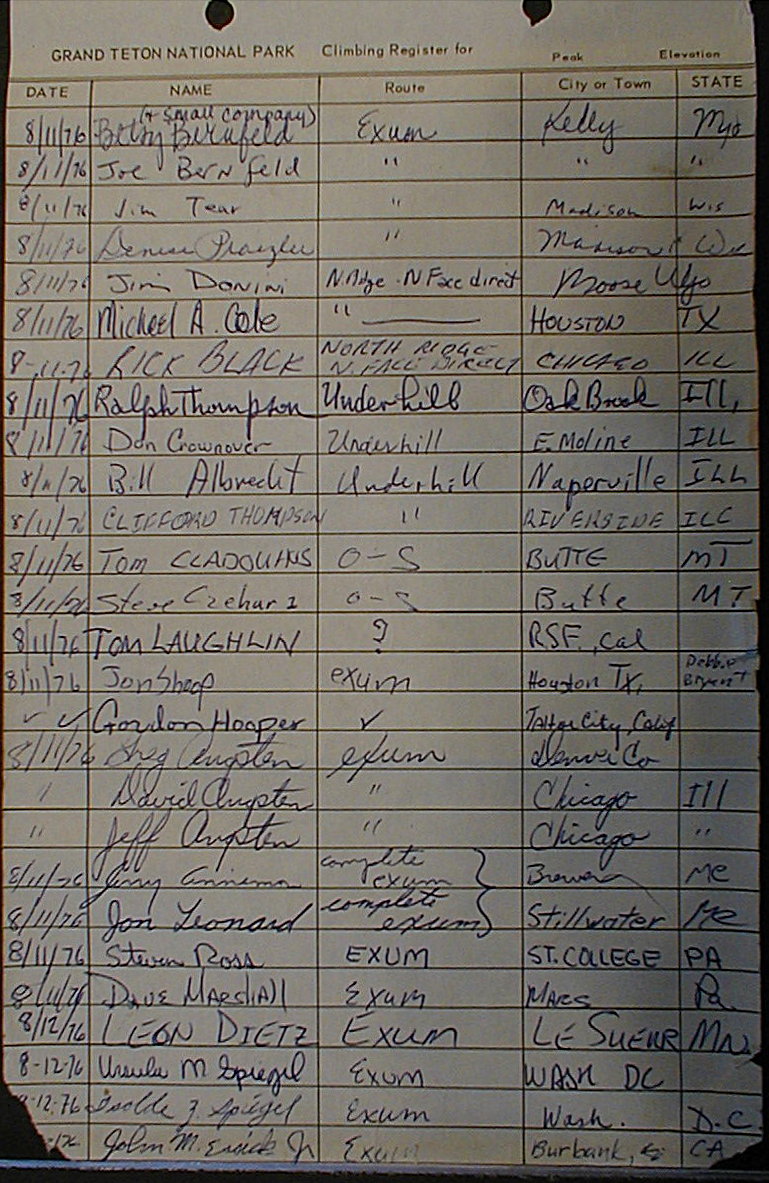 GRAND TETON NATIONAL PARK Climbing Register for Peak Elevation
DATE NAME Route City or Town STATE
(+ small company)
8/11/76 Betsy Bernfeld Exum Kelly Wyo
8/11/76 Joe Bernfeld " " "
8/11/76 Jim Tear " Madison Wis
8/11/76 Denise " Madison
8/11/76 Jim Donini N Ridge - N Face direct Moose Wyo
8/11/76 Michael A. Cole " HOUSTON TX
8-11-76 RICK BLACK NORTH RIDGE N. FACE DIRECT CHICAGO ILL
8/11/76 Ralph Thompson Underhill Oak Brook Ill,
8/11/76 Don Crownover Underhill E. Moline ILL
8/11/76 Bill Albrecht Underhill Naperville ILL
8/11/76 CLIFFORD THOMPSON " RIVERSIDE ILL
8/11/76 TOM CLADOUHNS O-S BUTTE MT
8/11/76 Steve O-S Butte MT
8/11/76 TOM LAUGHLIN ? RSF., Cal
8/11/76 Jon Shoop exum Houston TX, Debbie Bryant
✓ ✓ Gordon Hooper ✓ Tahoe City, Calif
8/11/76 Greg Angsten exum Denver Co
" David Angsten " Chicago Ill
" Jeff Angsten " Chicago "
8/11/76 Jerry complete exum Brewer Me
8/11/76 Jon Leonard complete exum Stillwater Me
8/11/76 Steven Ross EXUM ST. COLLEGE PA
8/11/76 DAVE MARSHALL Exum MARS Pa.
8/12/76 LEON DIETZ EXUM LE SUEUR MN.
8-12-76 Ursula M Spiegel Exum WASH DC
8-12-76 Isolde Z. Spiegel Exum Wash. D.C.
John M. Jr Exum Burbank, CA